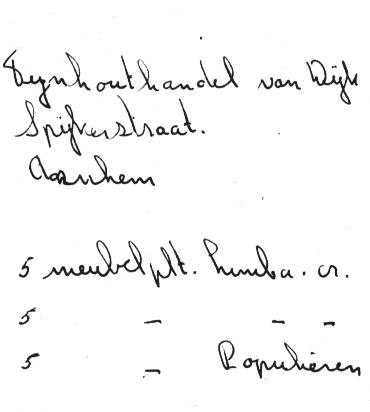 Fynhouthandel van Dijk
Spijkerstraat.
Aarnhem
5 meubelplt. Limba. cr.
5 — — —
5 — Populieren